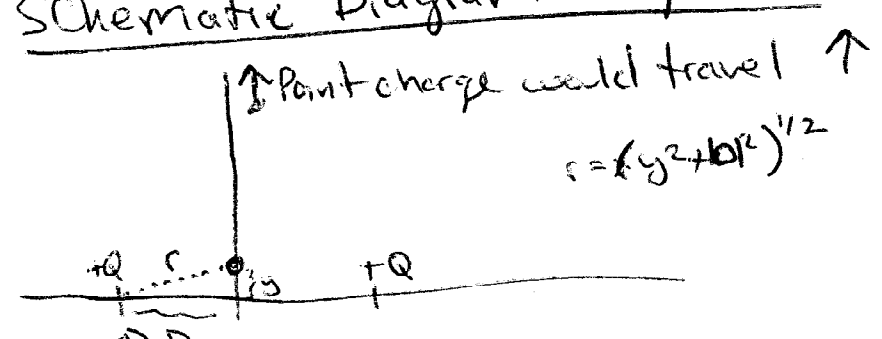 Schematic Diagram
↑ Point charge would travel ↑
r = (y²+D²)^1/2
+Q r y +Q
D